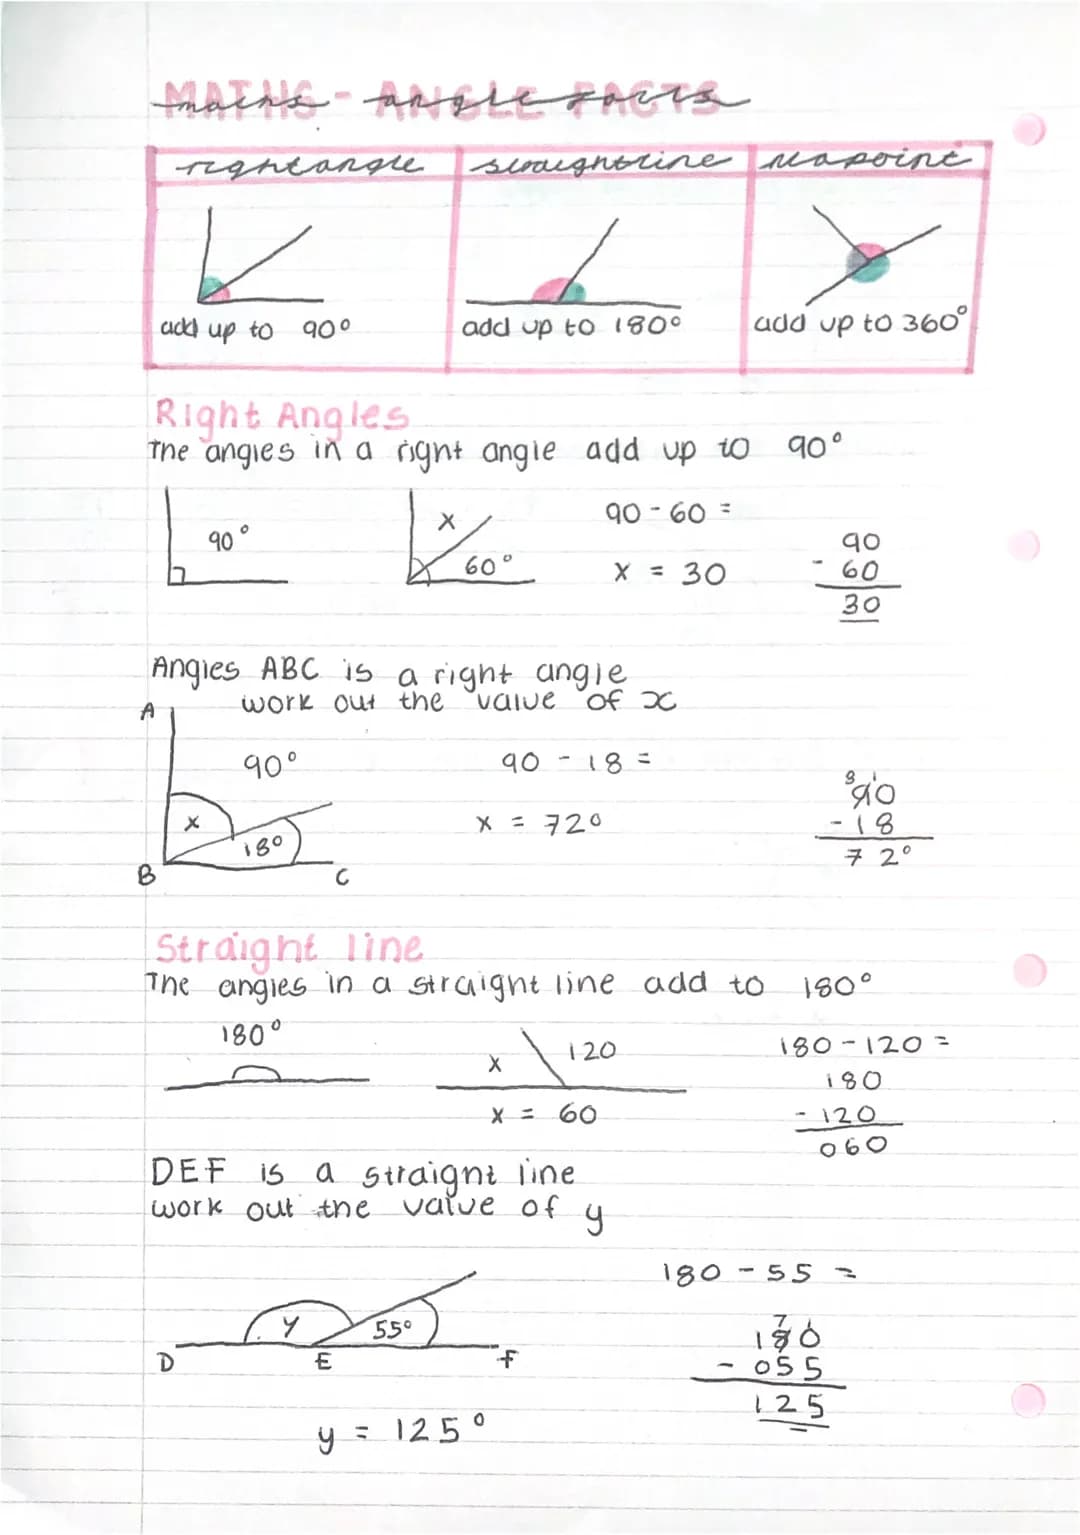 MATHS - ANGLE FACTS
maths - angle facts
right angle straight line at a point
add up to 90° add up to 180° add up to 360°
Right Angles
The angles in a right angle add up to 90°
90° x 60° 90 - 60 =
x = 30
90
- 60
30
Angles ABC is a right angle
work out the value of x
A
90° 90 - 18 =
x 18° x = 72°
B C
8 1
90
- 18
72°
Straight line
The angles in a straight line add to 180°
180° x 120 180 - 120 =
x = 60
180
- 120
060
DEF is a straight line
work out the value of y
180 - 55 =
y 55°
D E F
7
180
- 055
125
y = 125°